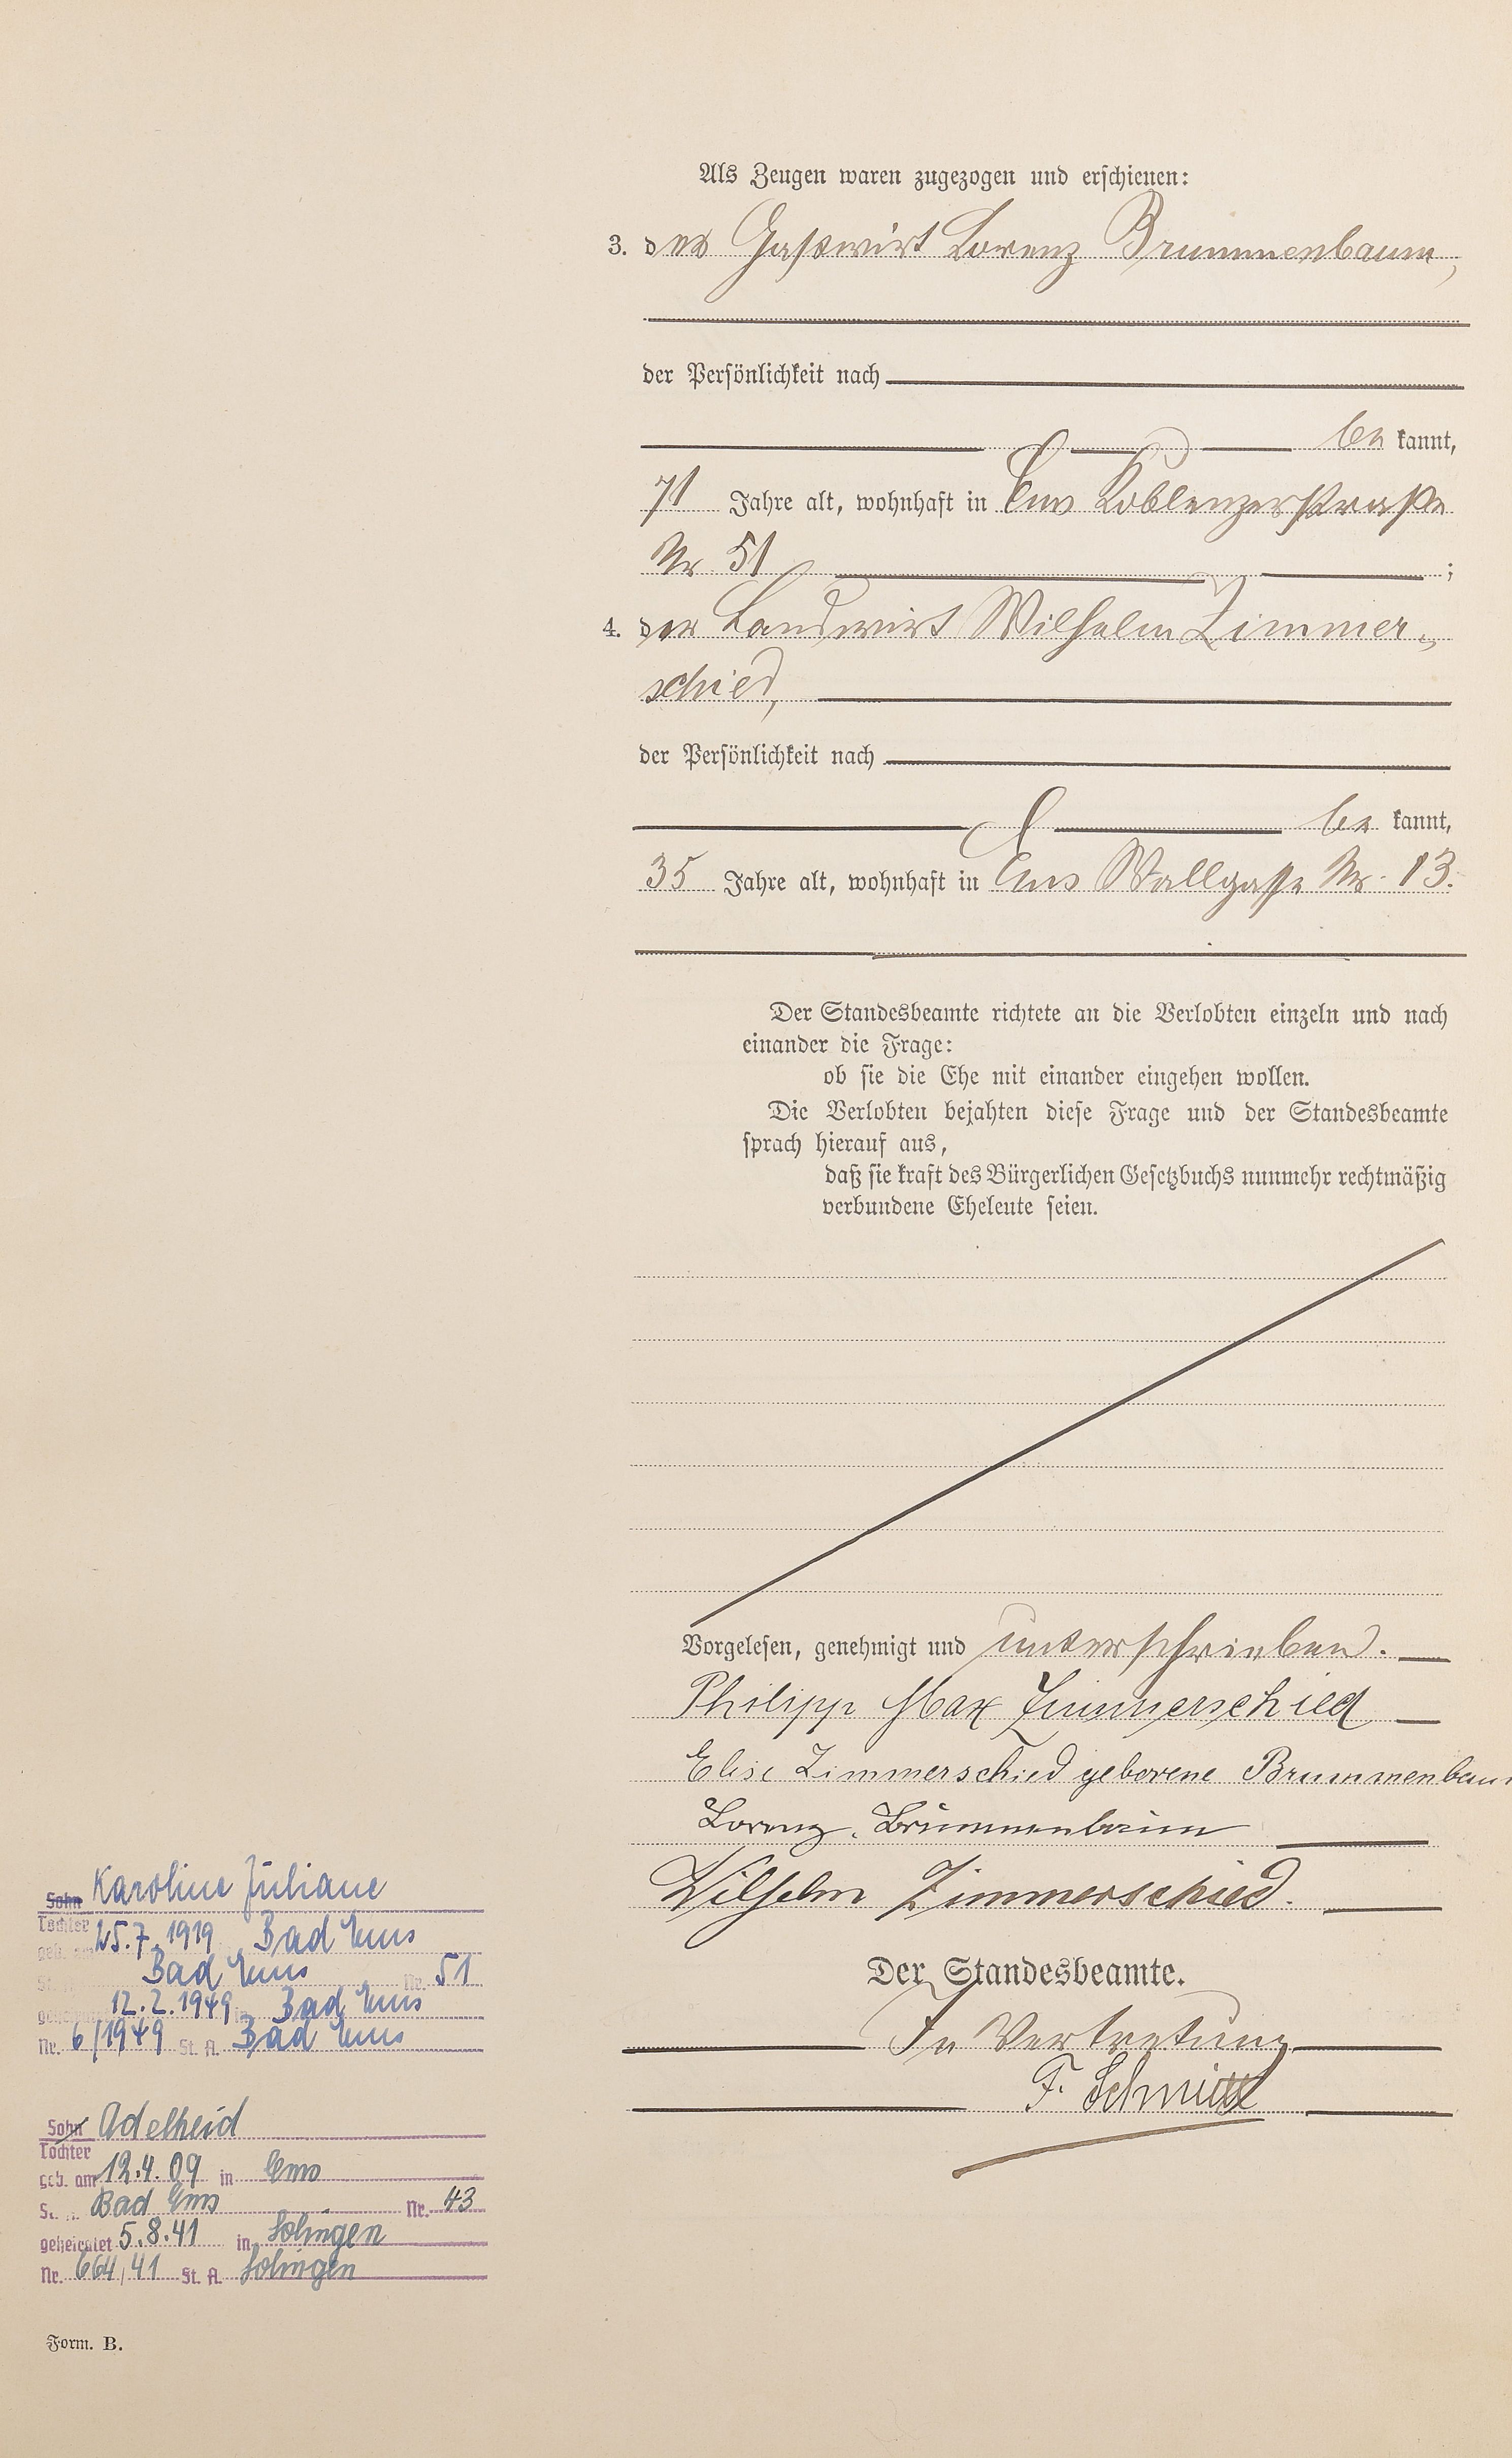 Als Zeugen waren zugezogen und erschienen:
3. der Gastwirt Lorenz Brummenbaum,
der Persönlichkeit nach
be kannt,
71 Jahre alt, wohnhaft in Ems Koblenzerstraße
Nr 51 ;
4. der Landwirt Wilhelm Zimmer-
schied,
der Persönlichkeit nach
be kannt,
35 Jahre alt, wohnhaft in Ems Wallgasse Nr. 13.
Der Standesbeamte richtete an die Verlobten einzeln und nach
einander die Frage:
ob sie die Ehe mit einander eingehen wollen.
Die Verlobten bejahten diese Frage und der Standesbeamte
sprach hierauf aus,
daß sie kraft des Bürgerlichen Gesetzbuchs nunmehr rechtmäßig
verbundene Eheleute seien.
Vorgelesen, genehmigt und unterschrieben.
Philipp Max Zimmerschied
Elise Zimmerschied geborene Brummenbaum
Lorenz Brummenbaum
Wilhelm Zimmerschied.
Der Standesbeamte.
In Vertretung
F. Schmitt
Sohn Karoline Juliane
Tochter
geb. am 25.7.1919 Bad Ems
Bad Ems Nr. 51
12.2.1949 in Bad Ems
Nr. 6/1949 St. A. Bad Ems
Sohn Adelheid
Tochter
geb. am 12.4.09 in Ems
Bad Ems Nr. 43
geheiratet 5.8.41 in Solingen
Nr. 664/41 St. A. Solingen
Form. B.